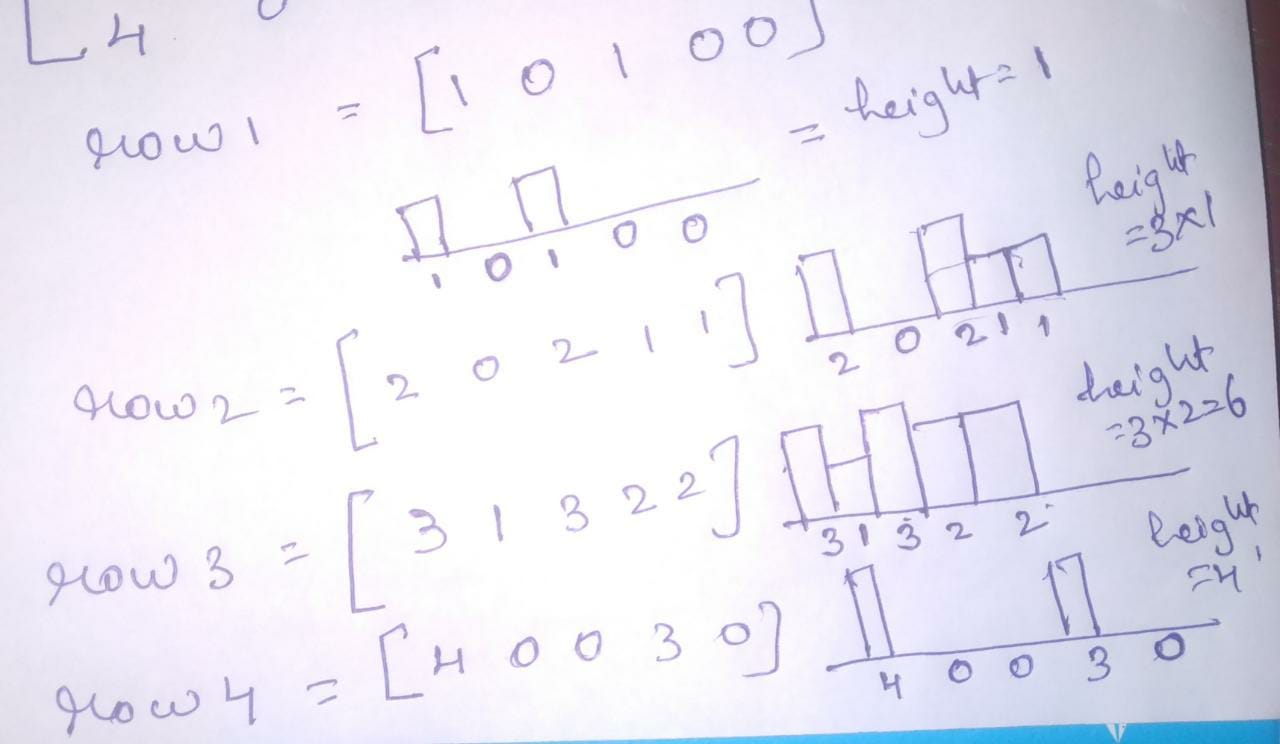 [ 4
row 1 = [ 1 0 1 0 0 ]
= height = 1
1 0 1 0 0
row 2 = [ 2 0 2 1 1 ]
2 0 2 1 1
height
= 3×1
row 3 = [ 3 1 3 2 2 ]
3 1 3 2 2
height
= 3×2=6
row 4 = [ 4 0 0 3 0 ]
4 0 0 3 0
height
= 4